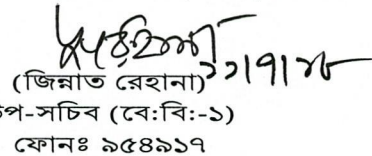 (জিন্নাত রেহানা)
প-সচিব (বে:বি:-১)
ফোনঃ ৯৫৪৯১৭